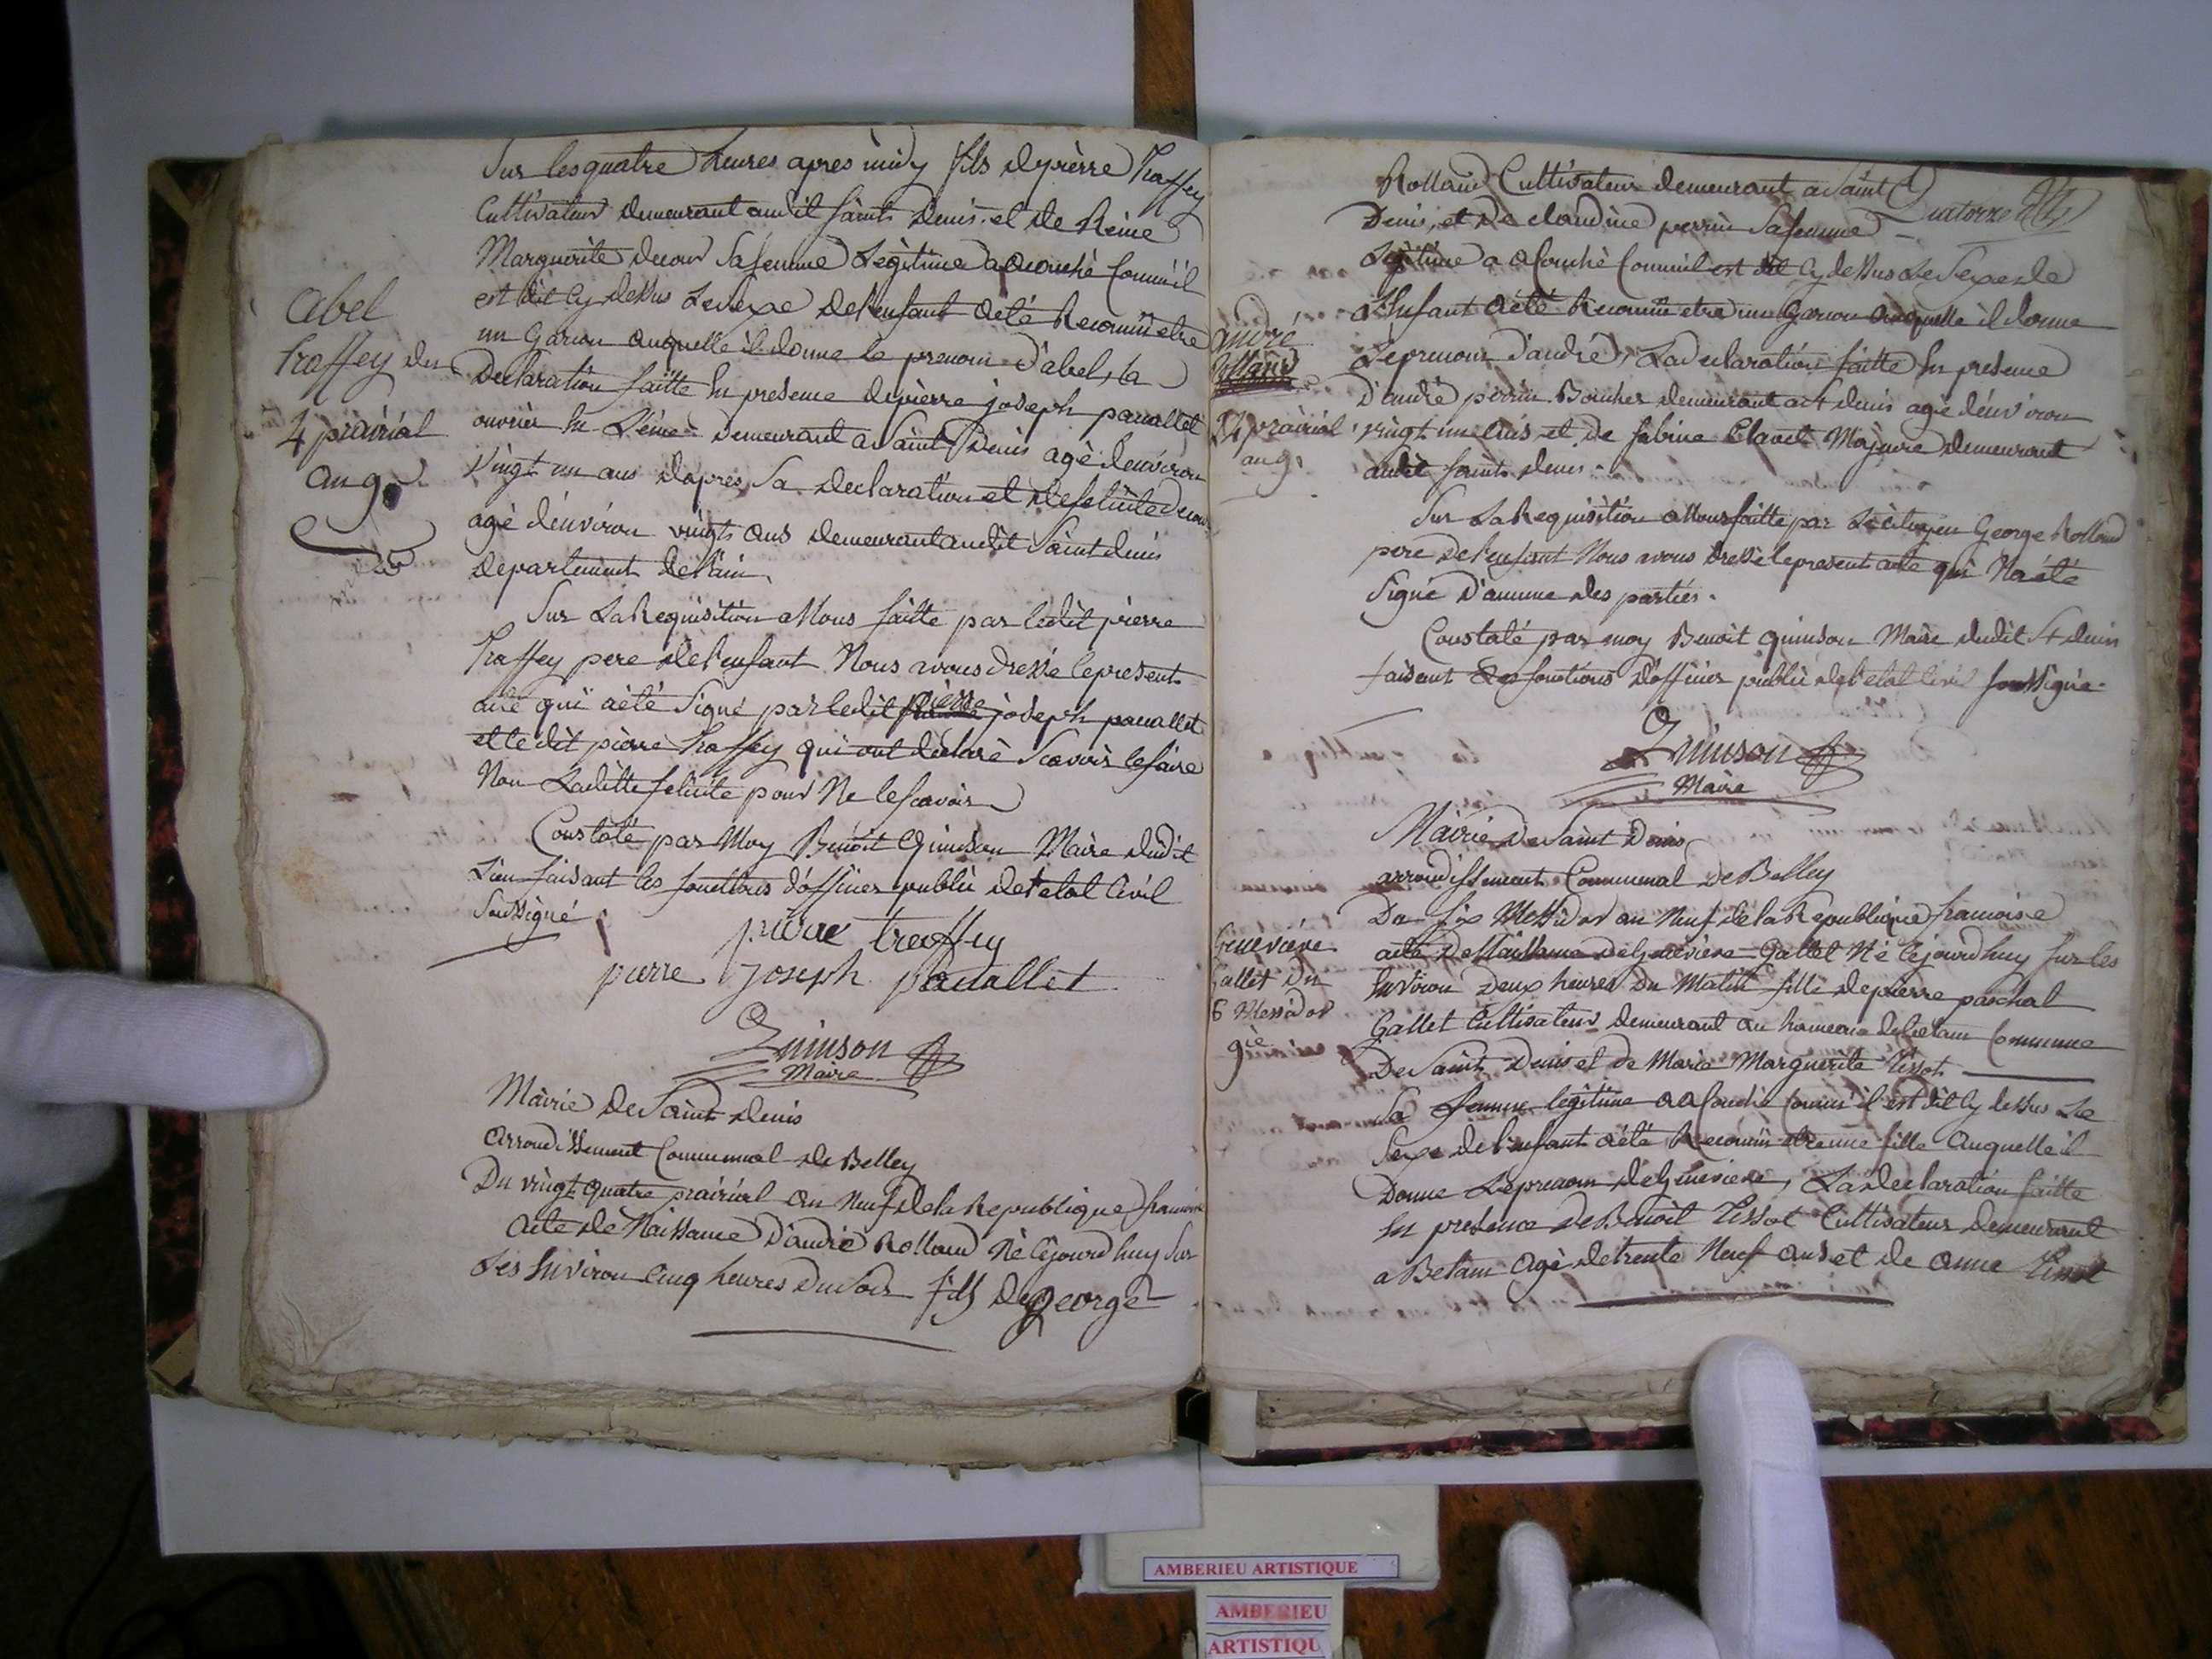 Sur les quatre heures apres midy fils de pierre Traffey
Cultivateur demeurant audit saint denis et de Reine
Marguerite decour Sa femme Legitime a acouché Comme il
est dit cy dessus Le Sexe de l'enfant a été Reconnu etre
un Garcon auquelle il donne le prenom d'abel, la
Declaration faitte En presence de pierre joseph panallet
ouvrier En Laine demeurant a Saint Denis agé d'environ
vingt un ans d'apres Sa declaration et de felicité decour
agé d'environ vingt ans demeurant audit Saint denis
departement de l'ain
Sur La Requisition a Nous faitte par ledit pierre
Traffey pere de l'enfant Nous avons dressé le present
acte qui a été Signé par ledit pierre joseph panallet
et le dit pierre Traffey qui ont déclaré Scavoir le faire
Non Laditte felicité pour Ne le scavoir
Constaté par Moy Benoit Quinson Maire dudit
Lieu faisant les fonctions d'officier public de l'etat Civil
Soussigné
pierre treffey
pierre joseph panallet
Quinson
Maire
Abel
Traffey du
4 prairial
an 9
Mairie de Saint denis
arrondissement Communal de Belley
Du vingt quatre prairial an neuf de la Republique francoise
Acte de Naissance D'andré Rolland Né cejourd'huy Sur
Les Environ cinq heures du Soir fils de george
Quatorze
Rolland Cultivateur demeurant a Saint
Denis, et de claudine perrin Sa femme
Legitime a acouché Comme il est dit cy dessus Le Sexe de
L'Enfant a été Reconnu etre un Garcon auquelle il donne
Le prenom d'andré, La declaration faitte En presence
D'andré perrin Boucher demeurant a St denis agé d'environ
vingt un ans et de Sabine Clavel Majeure demeurant
audit Saint denis
Sur La Requisition a Nous faitte par Le citoyen George Rolland
pere de l'enfant Nous avons dressé le present acte qui N'a été
Signé D'aucune des parties.
Constaté par moy Benoit Quinson Maire dudit St denis
faisant Les fonctions D'officier public de l'etat Civil soussigné
Quinson
Maire
andré
Rolland
24 prairial
an 9
Mairie de Saint Denis
arrondissement Communal de Belley
Du six Messidor an Neuf de la Republique francoise
acte de Naissance de Genevieve Gallet Né cejourd'huy sur les
Environ deux heures du Matin fille de pierre paschal
Gallet Cultivateur demeurant au hameau de Betam Commune
De Saint Denis et de Marie Marguerite Tissot
Sa femme legitime a acouché comme il est dit cy dessus Le
Sexe de l'enfant a été Reconnu etre une fille auquelle il
Donne Le prenom de Genevieve, La declaration faitte
En presence de Benoit Tissot Cultivateur demeurant
a Betam agé de trente Neuf ans et de anne Tissot
Genevieve
Gallet du
6 Messidor
9ie
AMBERIEU ARTISTIQUE
AMBERIEU
ARTISTIQU